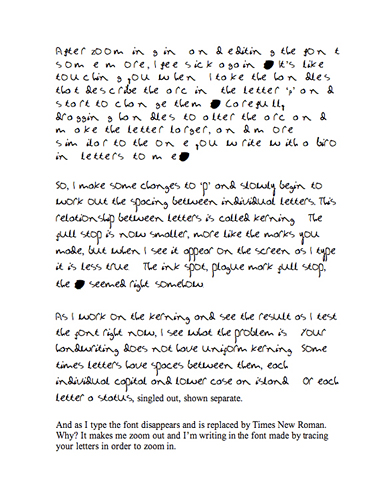 After zooming in and editing the font
some more, I feel sick again ● It's like
touching you when I take the handles
that describe the arc in the letter 'p' and
start to change them ● Carefully,
dragging handles to alter the arc and
make the letter larger, and more
similar to the one you write with a biro
in letters to me●
So, I make some changes to 'p' and slowly begin to
work out the spacing between individual letters. This
relationship between letters is called kerning The
full stop is now smaller, more like the marks you
made, but when I see it appear on the screen as I type
it is less true The ink spot, plague mark full stop,
the ● seemed right somehow
As I work on the kerning and see the result as I test
the font right now, I see what the problem is Your
handwriting does not have uniform kerning Some
times letters have spaces between them, each
individual capital and lower case an island Or each
letter a status, singled out, shown separate.
And as I type the font disappears and is replaced by Times New Roman.
Why? It makes me zoom out and I'm writing in the font made by tracing
your letters in order to zoom in.